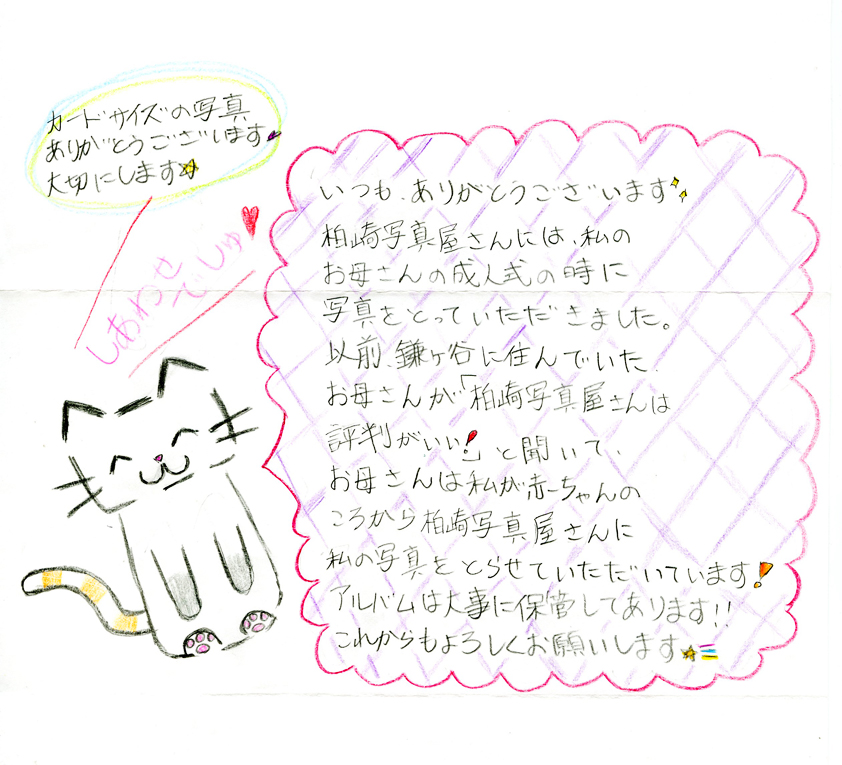 カードサイズの写真
ありがとうございます
大切にします
しあわせ
でしゅ
いつも、ありがとうございます
柏崎写真屋さんには、私の
お母さんの成人式の時に
写真をとっていただきました。
以前、鎌ヶ谷に住んでいた、
お母さんが「柏崎写真屋さんは
評判がいい!」と聞いて、
お母さんは私が赤ちゃんの
ころから柏崎写真屋さんに
私の写真をとらせていただいています!
アルバムは大事に保管してあります!!
これからもよろしくお願いします